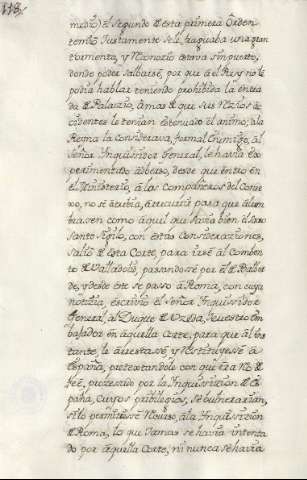 118,,
medio) el segundo de esta primera Orden
temio Justamente se le fraguaba una gran
tormenta, y Notorio estava sin puerto,
donde poder salbarse, por que al Rey no le
podia hablar teniendo prohibida la entra
da de Palazio, a mas de que sus Nezios ac
cidentes le tenian extenuado el animo; ala
Reina la considerava, formal Enemigo, al
Señor Inquisidor General, le havia ex
perimentado adberso, desde que entro en
el Ministerio, a las compañeros del Conse
xo, no se atrebia, atraerlos para que alum
brasen como aquel que havia bien el
Santo Sixilo, con estas Consideraciones,
salio de esta Corte, para irse al Comben
to de Valladolid, pasandose por el de
de, y desde este se paso a Roma, con cuya
notizia, escrivio el señor Inquisidor
General, al Duque de Uzeda, Nuestro Em
baxador en aquella corte, para que al ins
tante, le arrestasse, y Restituyesse a
España, pretextandole con que era Reo de
Feé, processado por la Inquisizion de Es
paña, Cuyos pribilegios, se bulnerarian,
si se permitiesse Recurso, ala Inquisizion
de Roma, lo que Jamas se havia intenta
do por aquella Corte, ni nunca se havia